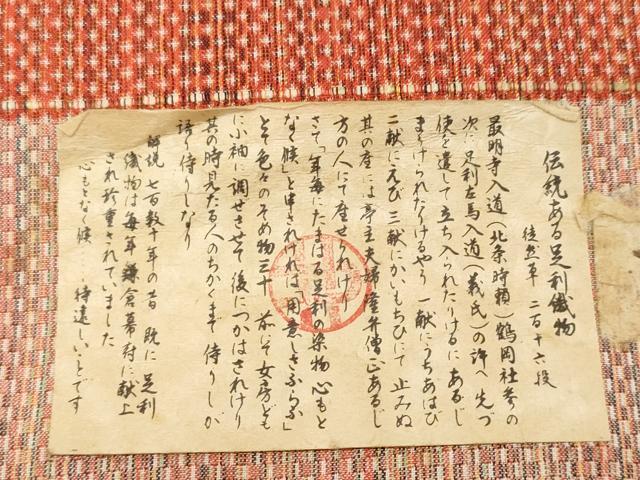 伝統ある足利織物
徒然草 二百十六段
最明寺入道(北条時頼)鶴岡社参の
次に足利左馬入道(義氏)の許へ 先づ
使を遣して立ち入られたりけるに あるじ
まうけられたりけるやう 一献にうちあはび
二献にえび 三献にかいもちひにて 止みぬ
其の座には亭主夫婦 隆弁僧正あるじ
方の人にて座せられけり
さて「年毎にたまはる足利の染物 心もと
なく候」と申されければ「用意しさふらふ」
とて色々のそめ物三十 前にて女房ども
に小袖に調せさせて 後につかはされけり
其の時見たる人のちかくまで 侍りしが
語り侍りしなり
解説 七百数十年の昔 既に足利
織物は毎年鎌倉幕府に献上
され珍重されていました
心もとなく候…待遠しいとです